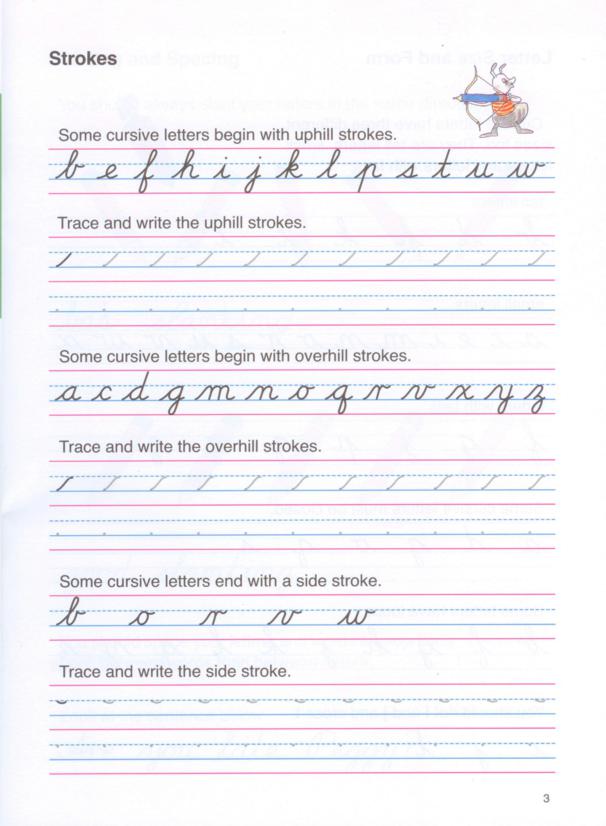 Strokes
Some cursive letters begin with uphill strokes.
b e f h i j k l p s t u w
Trace and write the uphill strokes.
Some cursive letters begin with overhill strokes.
a c d g m n o q r v x y z
Trace and write the overhill strokes.
Some cursive letters end with a side stroke.
b o r v w
Trace and write the side stroke.
3